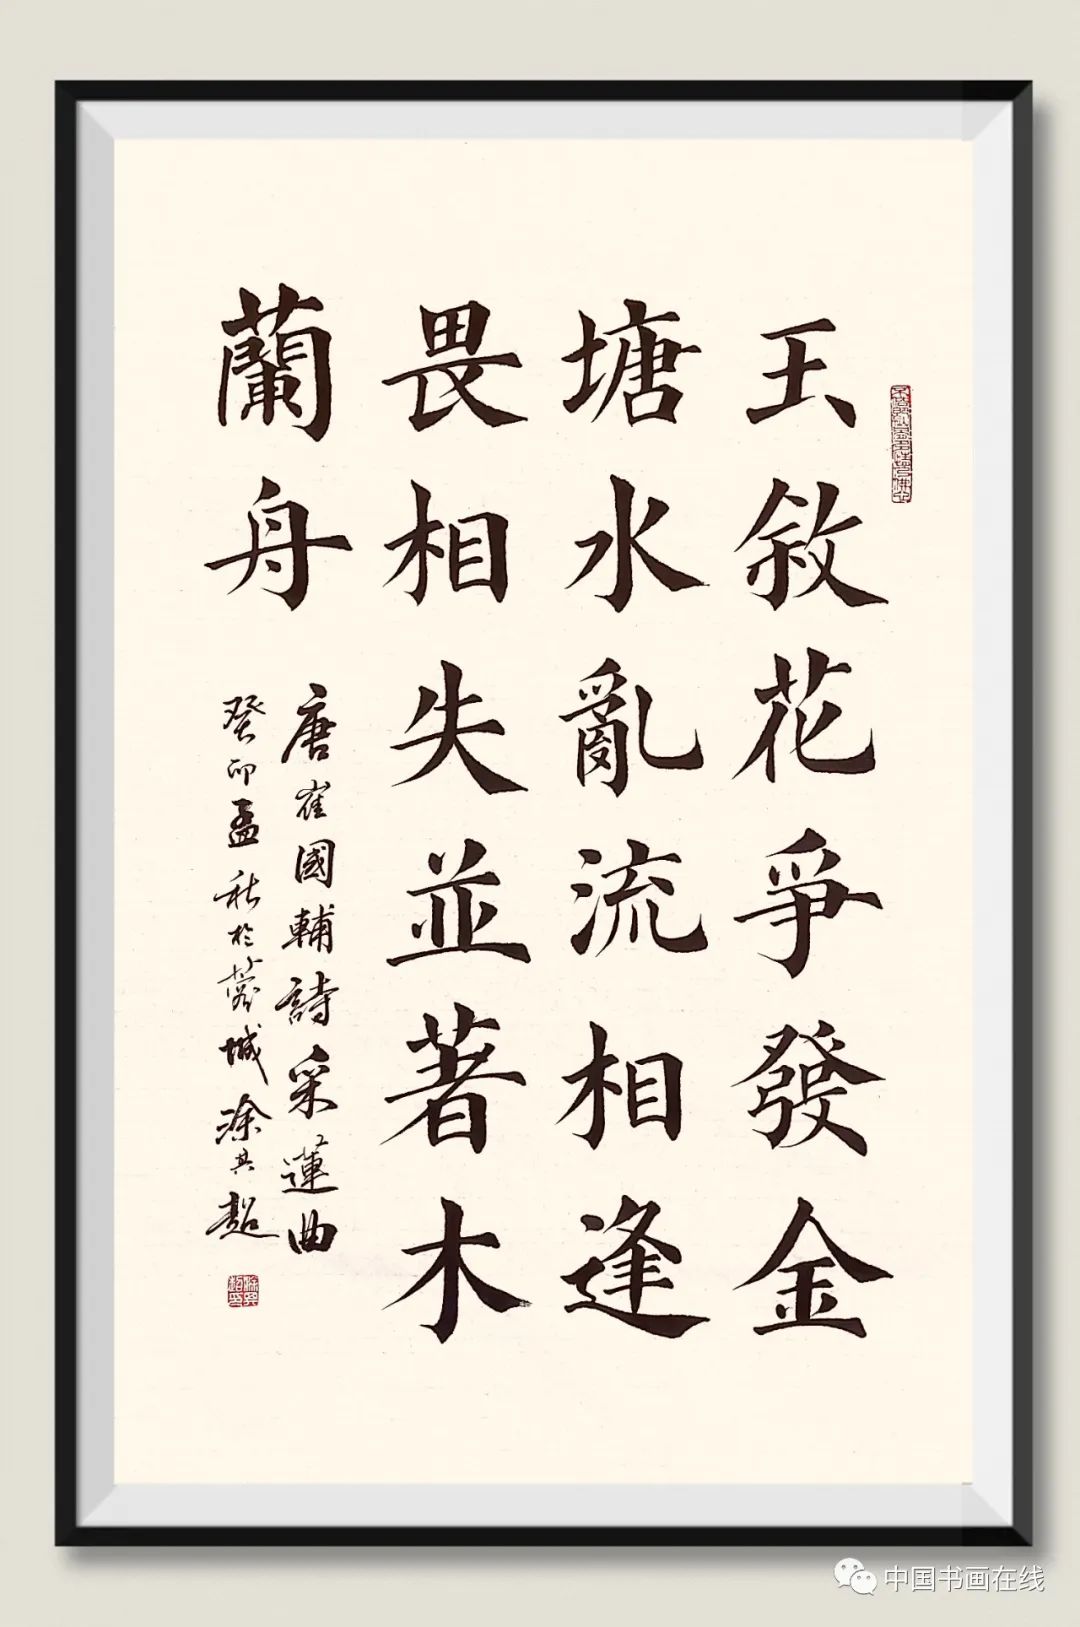 玉敘花爭發金
塘水亂流相逢
畏相失並著木
蘭舟
唐崔國輔詩采蓮曲
癸卯孟秋於蓉城涂其超
中国书画在线